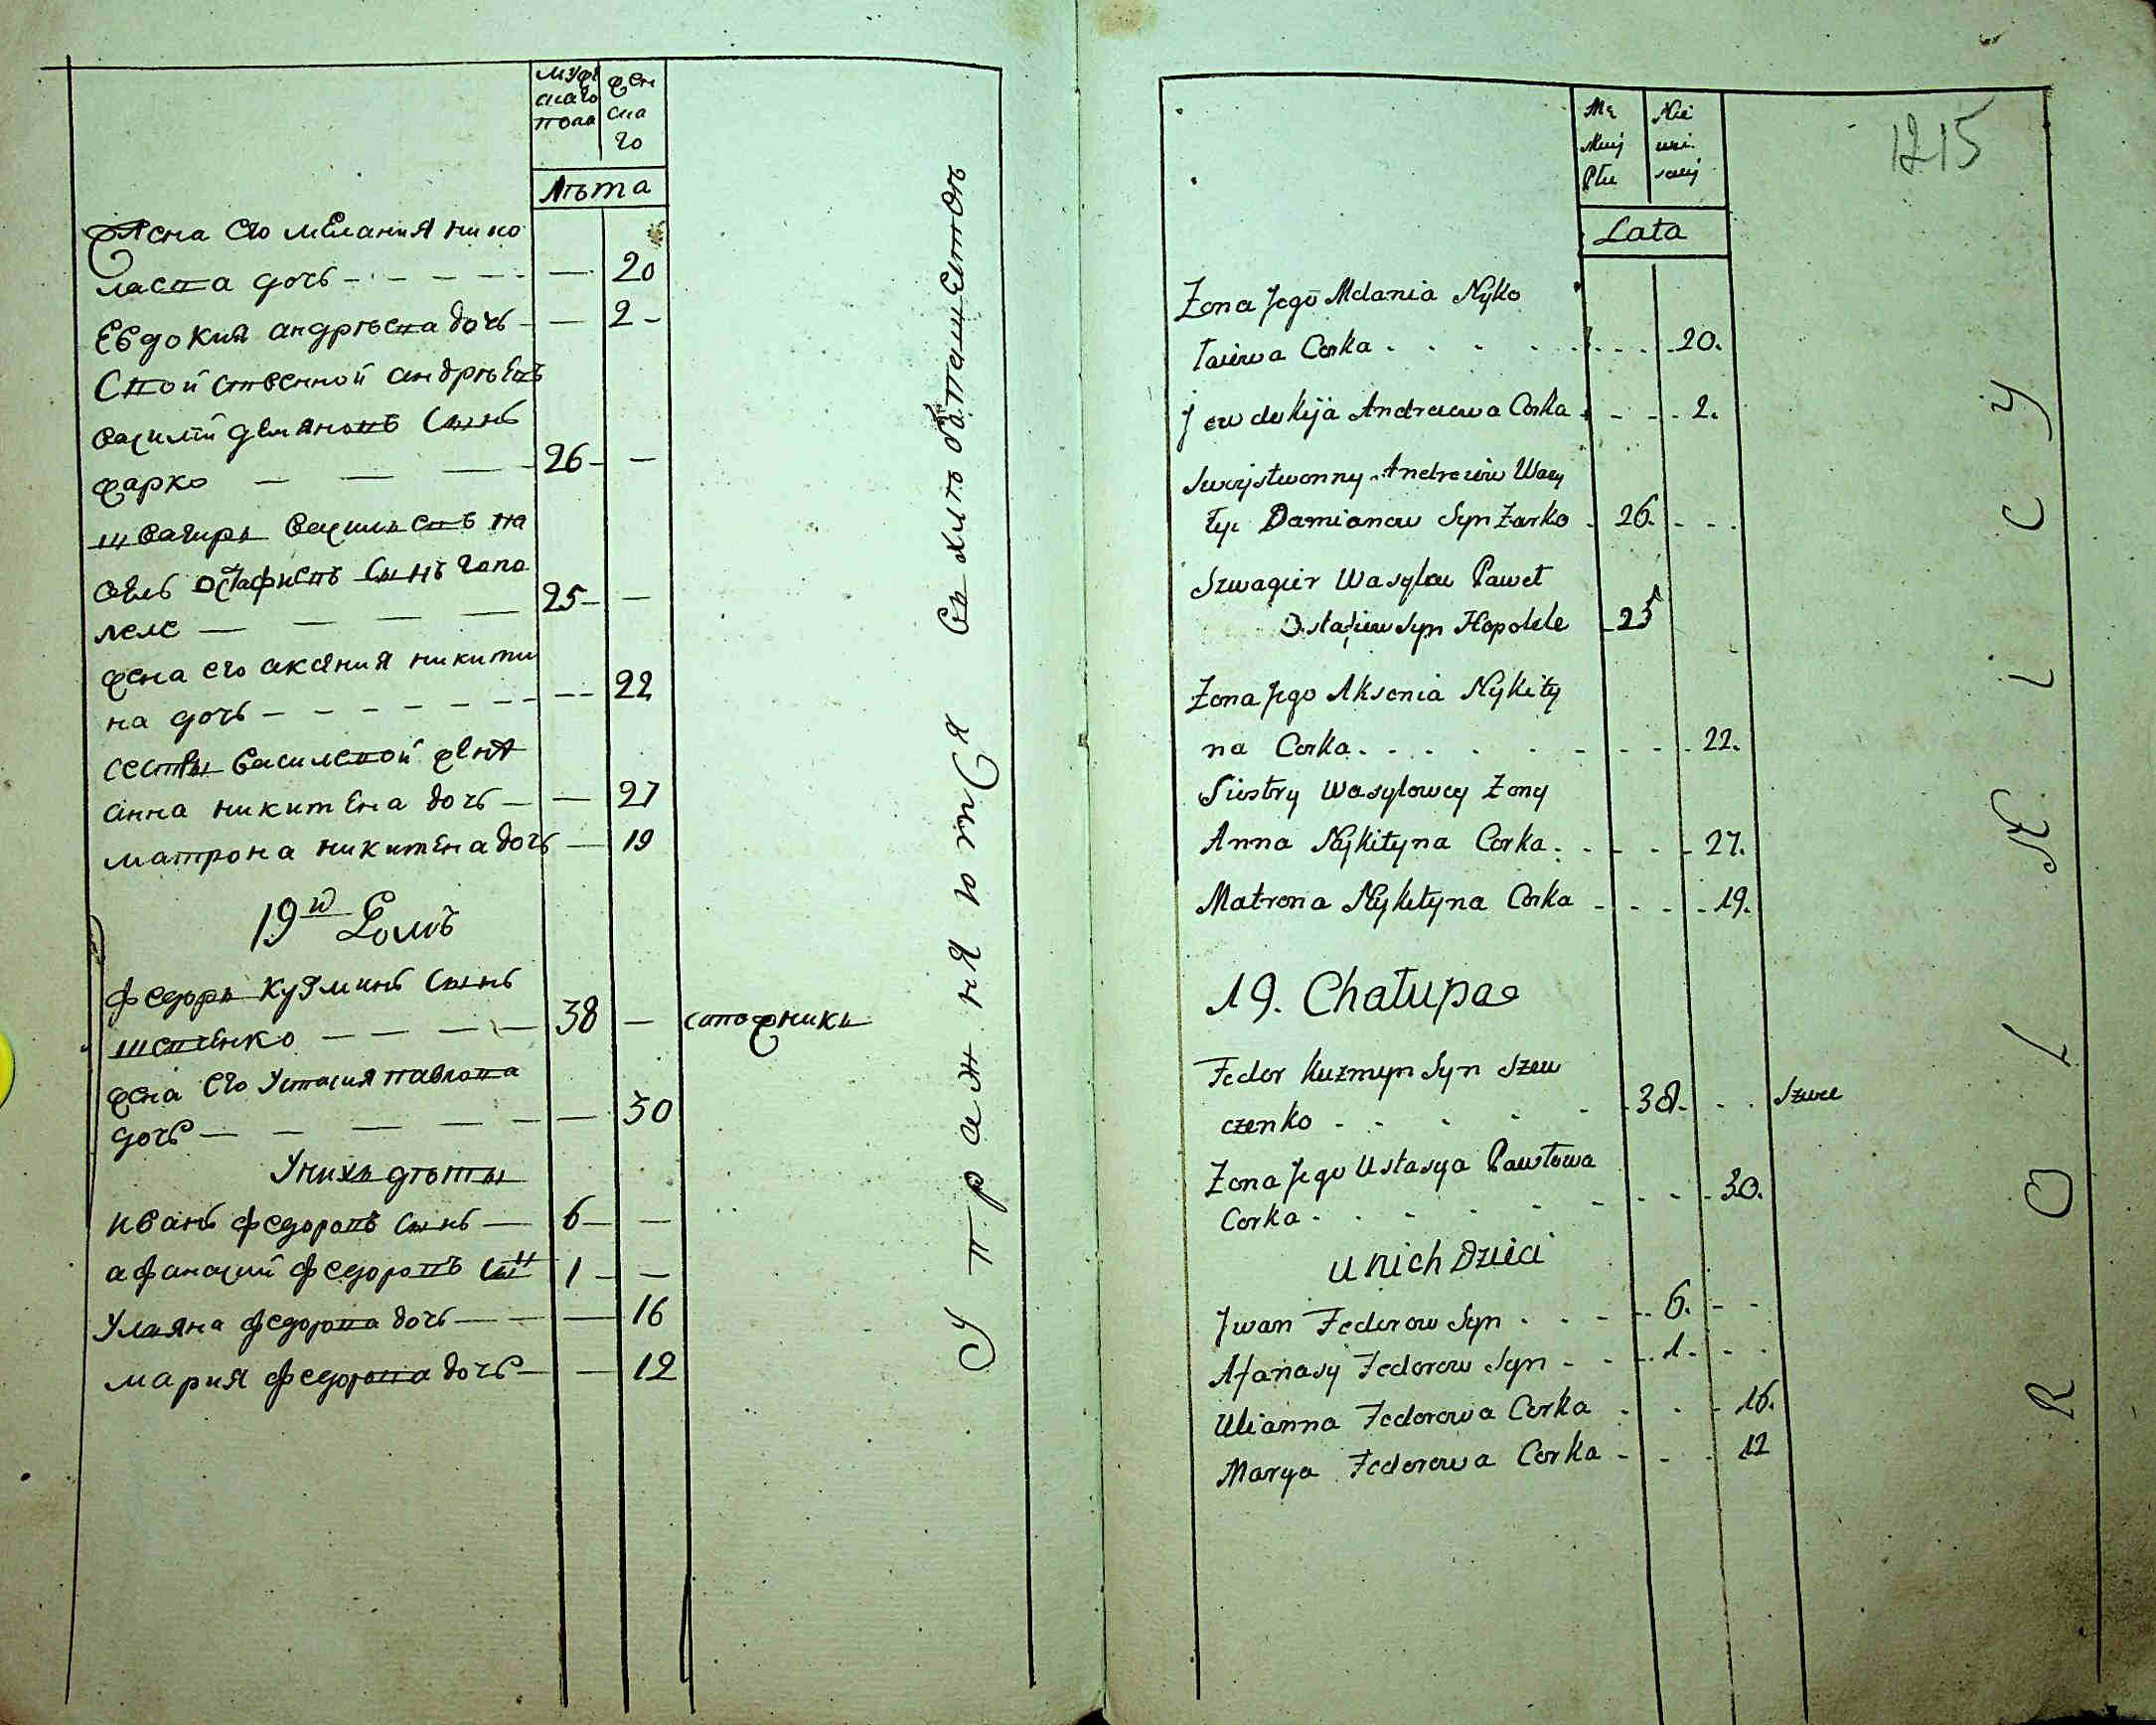 мужскаго пола
женскаго
лѣта
Жена его мелания нико
лаева дочь - - - - - — 20
Евдокия андрѣева дочь - — 2 -
Свойственной андрѣевъ
василий демяновъ сынъ
жарко — — — 26 - —
швагиръ василѣвъ па
велъ остафиевъ сынъ гопо
леле — — — — 25 - —
жена его аксения никити
на дочь - - - - - - - - - 22
сестры василевой жены
анна никитена дочь — — 27
матрона никитена дочь — 19
19й Домъ
федоръ кузминъ сынъ
шевченко — — — — 38 — сапожникъ
жена его устасия павлова
дочь — — — — — — 30
У нихъ дѣты
иванъ федоровъ сынъ — 6 - —
афанасий федоровъ сынъ 1 - —
Улияна федорова дочь — — — 16
мария федорова дочь — — 12
Упражняются въ хлѣбопашествѣ
1215
Mę
skiej
Płci
Żeń
skiej
Lata
Żona Jego Melania Nyko
łaiewa Corka . . . . . . . . 20.
Jewdokija Andreiewa Corka . - - - 2.
Swojstwonny Andreiow Wasy
łyi Damianow Syn Żarko . 26. - - .
Szwagier Wasylow Paweł
Ostafiew Syn Hopolele 25
Żona Jego Aksenia Nykity
na Corka . . . . . . . . . 22.
Siostry Wasylowey Żony
Anna Nykityna Corka . . - - - 27.
Matrona Nykityna Corka - - - - 19.
19. Chałupa
Fedor Kuzmyn Syn Szew
czenko - . . . . 38. . . Szwec
Żona Jego Ustasya Pawłowa
Corka . . . . . . . . . 30.
u nich Dzieci
Jwan Fedorow Syn . . - - 6. - -
Afanasy Fedorow Syn - - - 1. - -
Ulianna Fedorowa Corka . . - 16.
Marya Fedorowa Corka - - - 12
ROLNICY